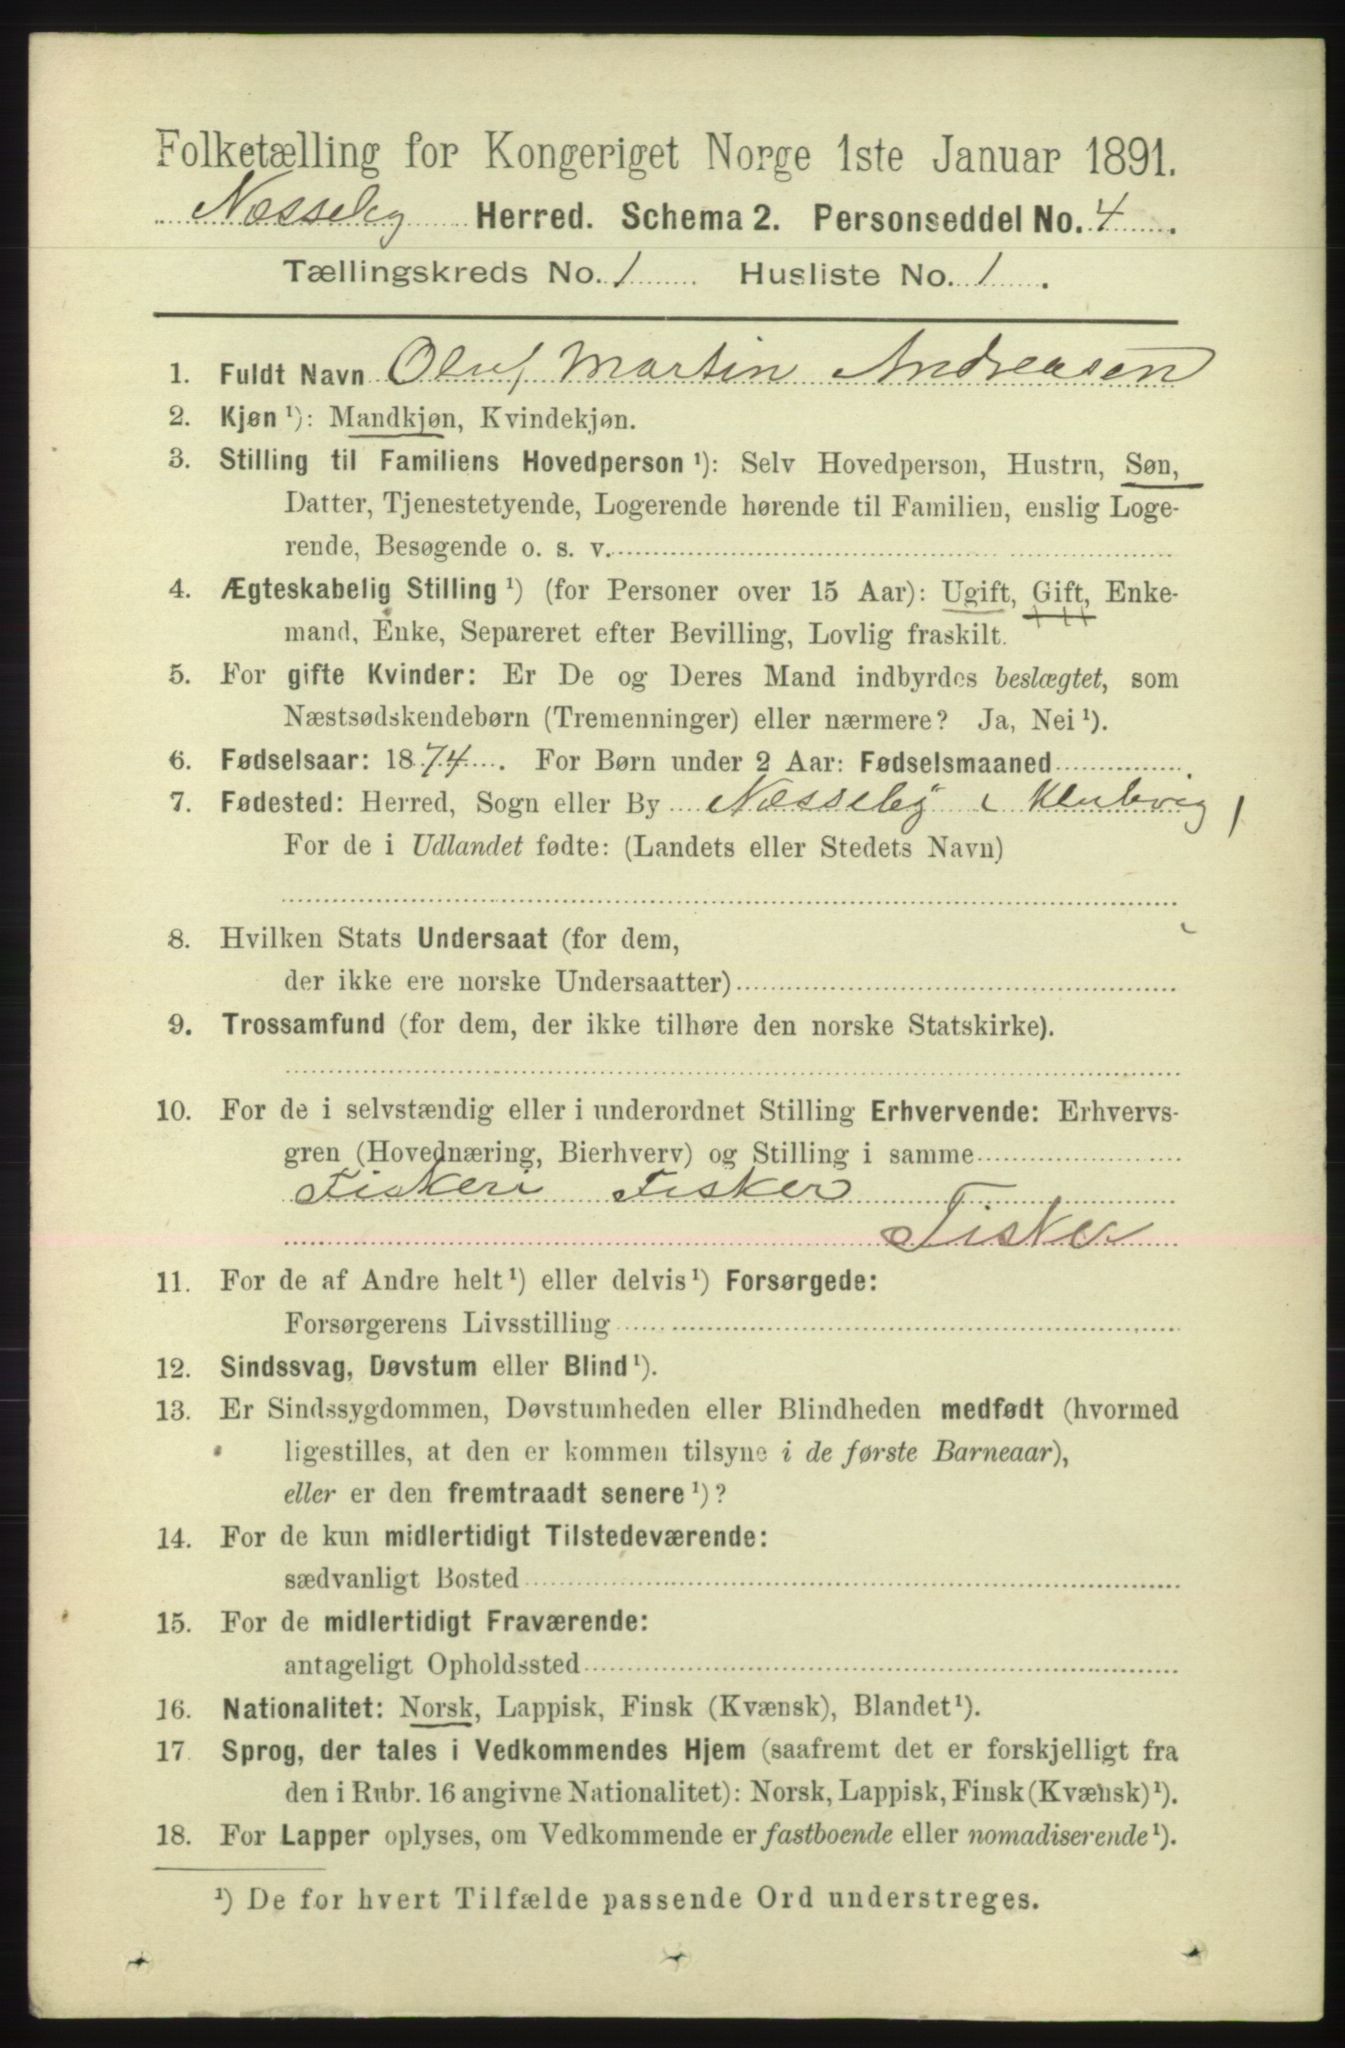 Folketælling for Kongeriget Norge 1ste Januar 1891.
Næsseby Herred. Schema 2. Personseddel No. 4.
Tællingskreds No. 1 Husliste No. 1.
1. Fuldt Navn Oluf Martin Andreasen
2. Kjøn ¹): Mandkjøn, Kvindekjøn.
3. Stilling til Familiens Hovedperson ¹): Selv Hovedperson, Hustru, Søn,
Datter, Tjenestetyende, Logerende hørende til Familien, enslig Loge-
rende, Besøgende o. s. v.
4. Ægteskabelig Stilling ¹) (for Personer over 15 Aar): Ugift, Gift, Enke-
mand, Enke, Separeret efter Bevilling, Lovlig fraskilt.
5. For gifte Kvinder: Er De og Deres Mand indbyrdes beslægtet, som
Næstsødskendebørn (Tremenninger) eller nærmere? Ja, Nei ¹).
6. Fødselsaar: 1874. For Børn under 2 Aar: Fødselsmaaned
7. Fødested: Herred, Sogn eller By Næsseby i Klubvig
For de i Udlandet fødte: (Landets eller Stedets Navn)
8. Hvilken Stats Undersaat (for dem,
der ikke ere norske Undersaatter)
9. Trossamfund (for dem, der ikke tilhøre den norske Statskirke).
10. For de i selvstændig eller i underordnet Stilling Erhvervende: Erhvervs-
gren (Hovednæring, Bierhverv) og Stilling i samme
Fiskeri Fisker
Fisker
11. For de af Andre helt ¹) eller delvis ¹) Forsørgede:
Forsørgerens Livsstilling
12. Sindssvag, Døvstum eller Blind ¹).
13. Er Sindssygdommen, Døvstumheden eller Blindheden medfødt (hvormed
ligestilles, at den er kommen tilsyne i de første Barneaar),
eller er den fremtraadt senere ¹)?
14. For de kun midlertidigt Tilstedeværende:
sædvanligt Bosted
15. For de midlertidigt Fraværende:
antageligt Opholdssted
16. Nationalitet: Norsk, Lappisk, Finsk (Kvænsk), Blandet ¹).
17 Sprog, der tales i Vedkommendes Hjem (saafremt det er forskjelligt fra
den i Rubr. 16 angivne Nationalitet): Norsk, Lappisk, Finsk (Kvænsk) ¹).
18. For Lapper oplyses, om Vedkommende er fastboende eller nomadiserende ¹).
¹) De for hvert Tilfælde passende Ord understreges.